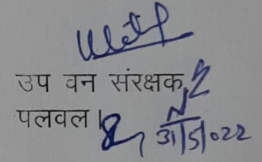 उप वन संरक्षक
पलवल।
31/5/022